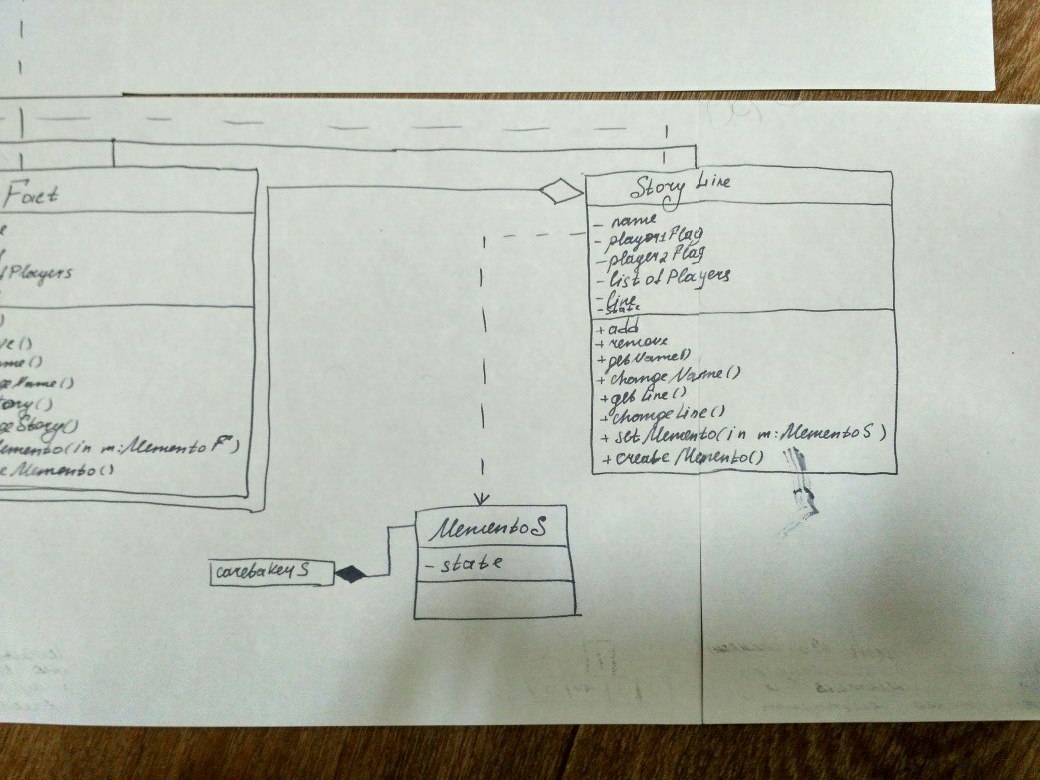 Fact
e
f Players
)
ve()
ame()
geName()
tory()
geStory()
emento(in m:Memento F)
e Memento()
Story Line
- name
- player1Flag
- player2Flag
- list of Players
- line
- state
+ add
+ remove
+ getName()
+ changeName()
+ getLine()
+ changeLine()
+ setMemento(in m:MementoS)
+ createMemento()
MementoS
- state
caretakerS